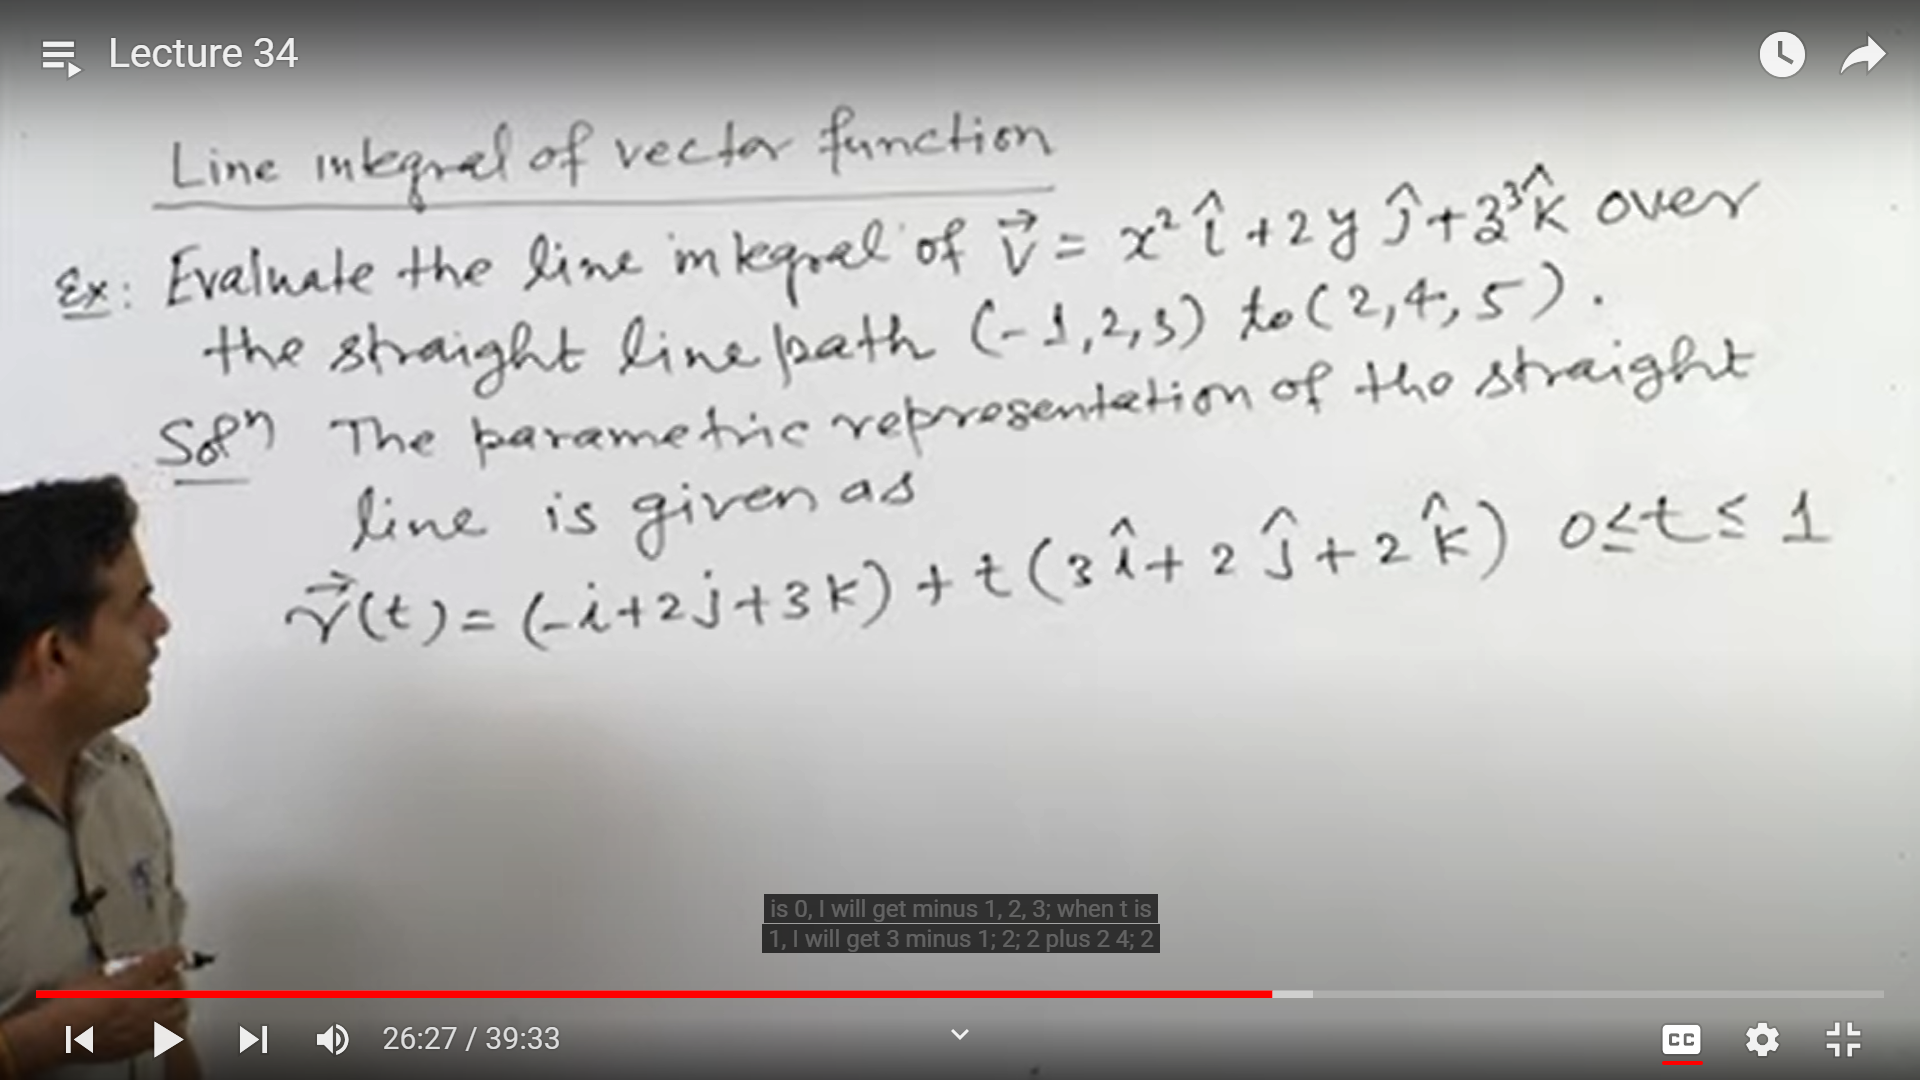 Lecture 34
Line integral of vector function
Ex: Evaluate the line integral of v⃗ = x² î + 2y ĵ + z³ k̂ over
the straight line path (-1,2,3) to (2,4,5).
Solⁿ The parametric representation of the straight
line is given as
r⃗(t) = (-i+2j+3k) + t(3î + 2ĵ + 2k̂) 0≤t≤1
is 0, I will get minus 1, 2, 3; when t is
1, I will get 3 minus 1; 2; 2 plus 2 4; 2
26:27 / 39:33
CC